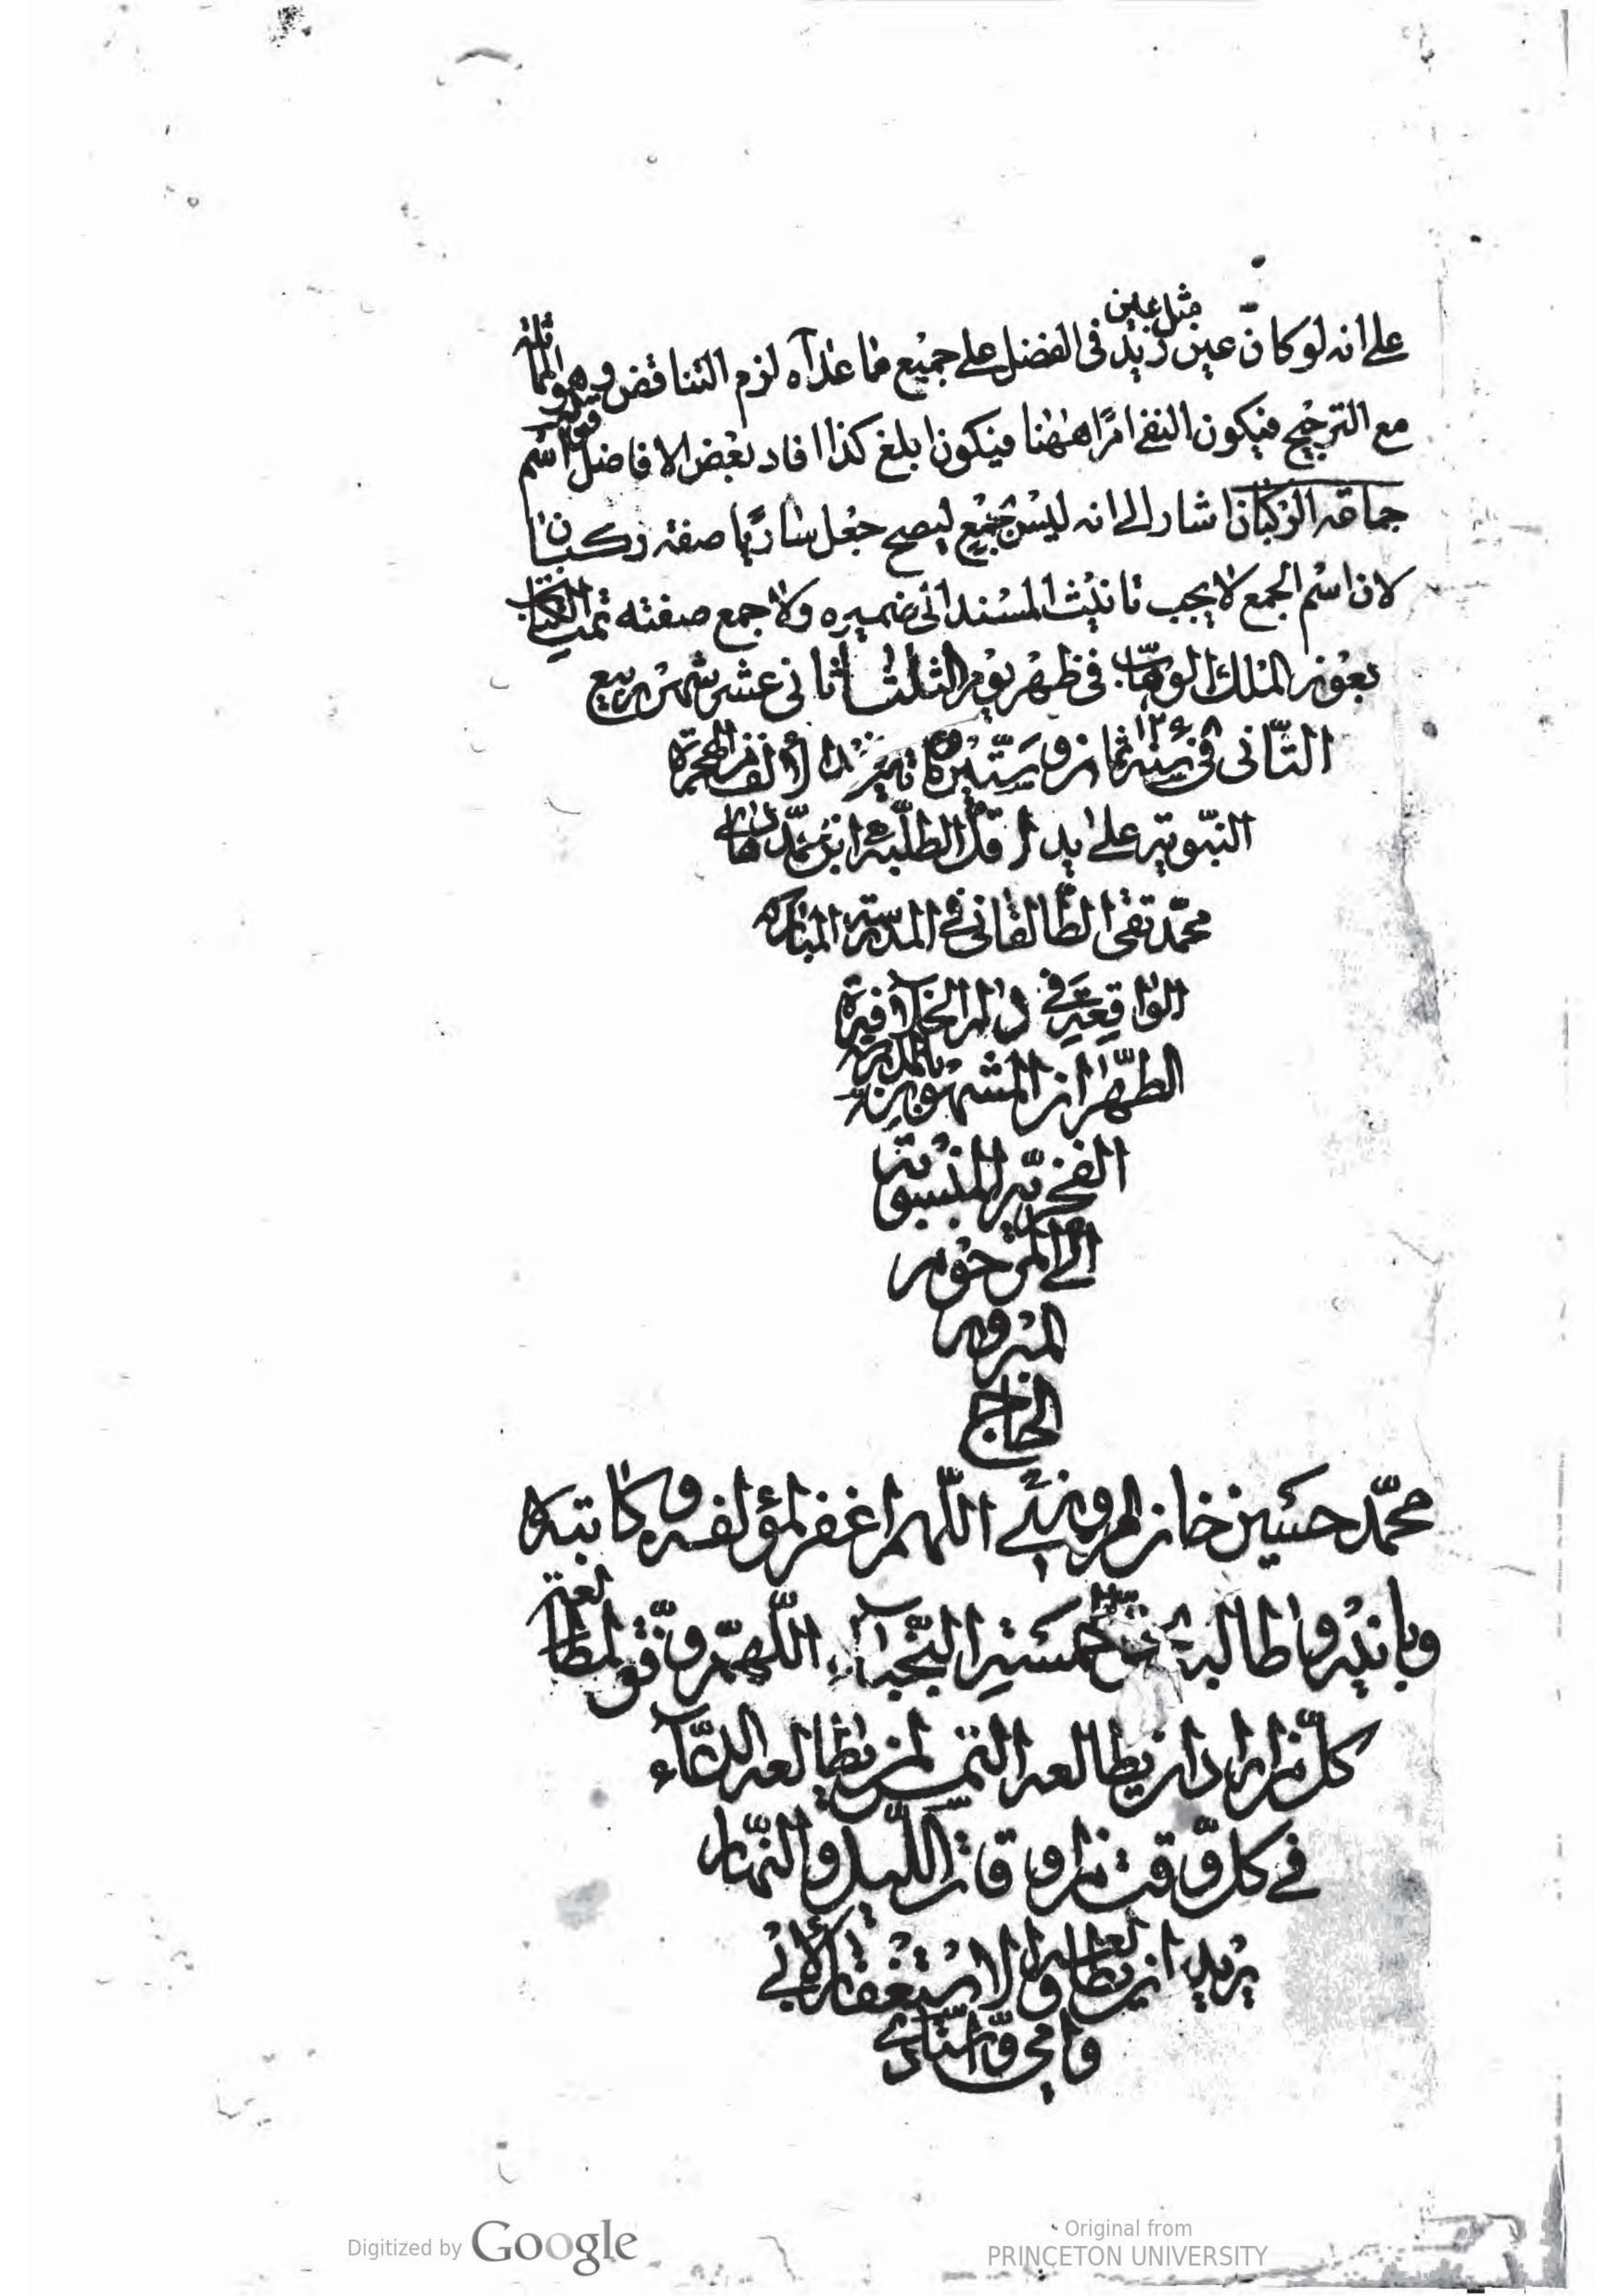 مثل عين
على انه لو كان عين زيد في الفضل على جميع ما عداه لزم التناقض وهو المماثلة
مع الترجيح فيكون النفي امرًا ههنا فيكون ابلغ كذا افاد بعض الافاضل قوله اسم
جماعة الركبان اشار الى انه ليس بجمع ليصح جعل ساريًا صفة ركبان
لان اسم الجمع لا يجب تانيث المسند الى ضميره ولا جمع صفته تمت الكتاب
بعون الملك الوهاب في ظهر يوم الثلثا ثاني عشر شهر ربيع
الثاني في سنة ١٢٦٨ ثمان وستين مائتين بعد الألف من الهجرة
النبوية على يد اقل الطلبة ابن محمد هادي
محمد تقي الطالقاني في المدرسة المباركة
الواقعة في دار الخلافة
الطهران المشهورة بالمدرسة
الفخرية المنسوبة
الى المرحوم
المبرور
الحاج
محمد حسين خان المروي اللهم اغفر لمؤلفه وكاتبه
وبانيه وطالبه بحق خمسة النجباء اللهم وفق لمطالعته
كل من اراد ان يطالعه التمس لمن يطالعه الدعاء
في كل وقت من اوقات الليل والنهار
يريد ان يطالعه والاستغفار لابي
وامي واستادي
Digitized by Google
Original from
PRINCETON UNIVERSITY